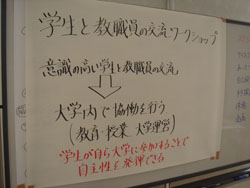 学生と教職員の交流ワークショップ
意識の高い学生と教職員の交流
大学内で協働を行う
(教育・授業 大学運営)
学生が自ら大学に参加することで
自主性を発揮できる